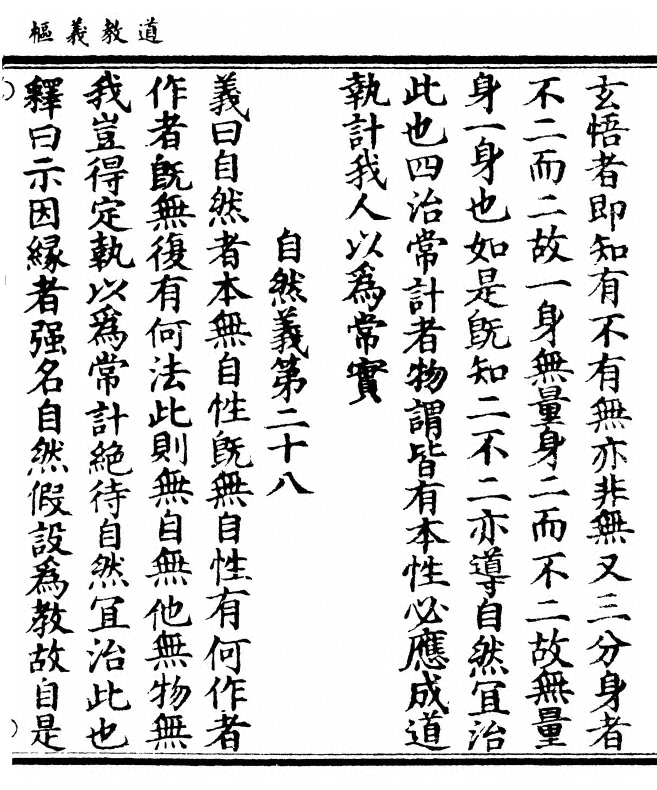 道教義樞
玄悟者即知有不有無亦非無又三分身者
不二而二故一身無量身二而不二故無量
身一身也如是既知二不二亦導自然冝治
此也四治常計者物謂皆有本性必應成道
執計我人以為常實
自然義第二十八
義曰自然者本無自性既無自性有何作者
作者既無復有何法此則無自無他無物無
我豈得定執以為常計絶待自然冝治此也
釋曰示因緣者强名自然假設為教故自是